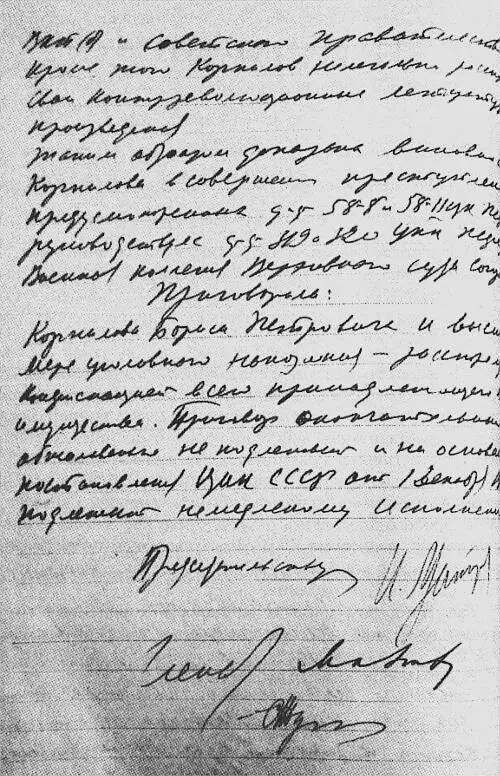 ВКП(б) и Советского правительств
Кроме того Корнилов нелегально рас
свои контрреволюционные литератур
произведения
Таким образом доказана виновн
Корнилова в совершении преступлен
предусмотренна д-д 58-8 и 58-11 УК
руководствуясь д-д 319 и 320 УПК
Военная коллегия Верховного суда Сою
Приговорила:
Корнилова Бориса Петровича к высш
мере уголовного наказания – расстрел
конфискацией всего принадлежащего
имущества. Приговор окончательный
обжалованию не подлежит и на основа
постановления ЦИК СССР от 1 декабр
подлежит немедленному исполнени
Председательству